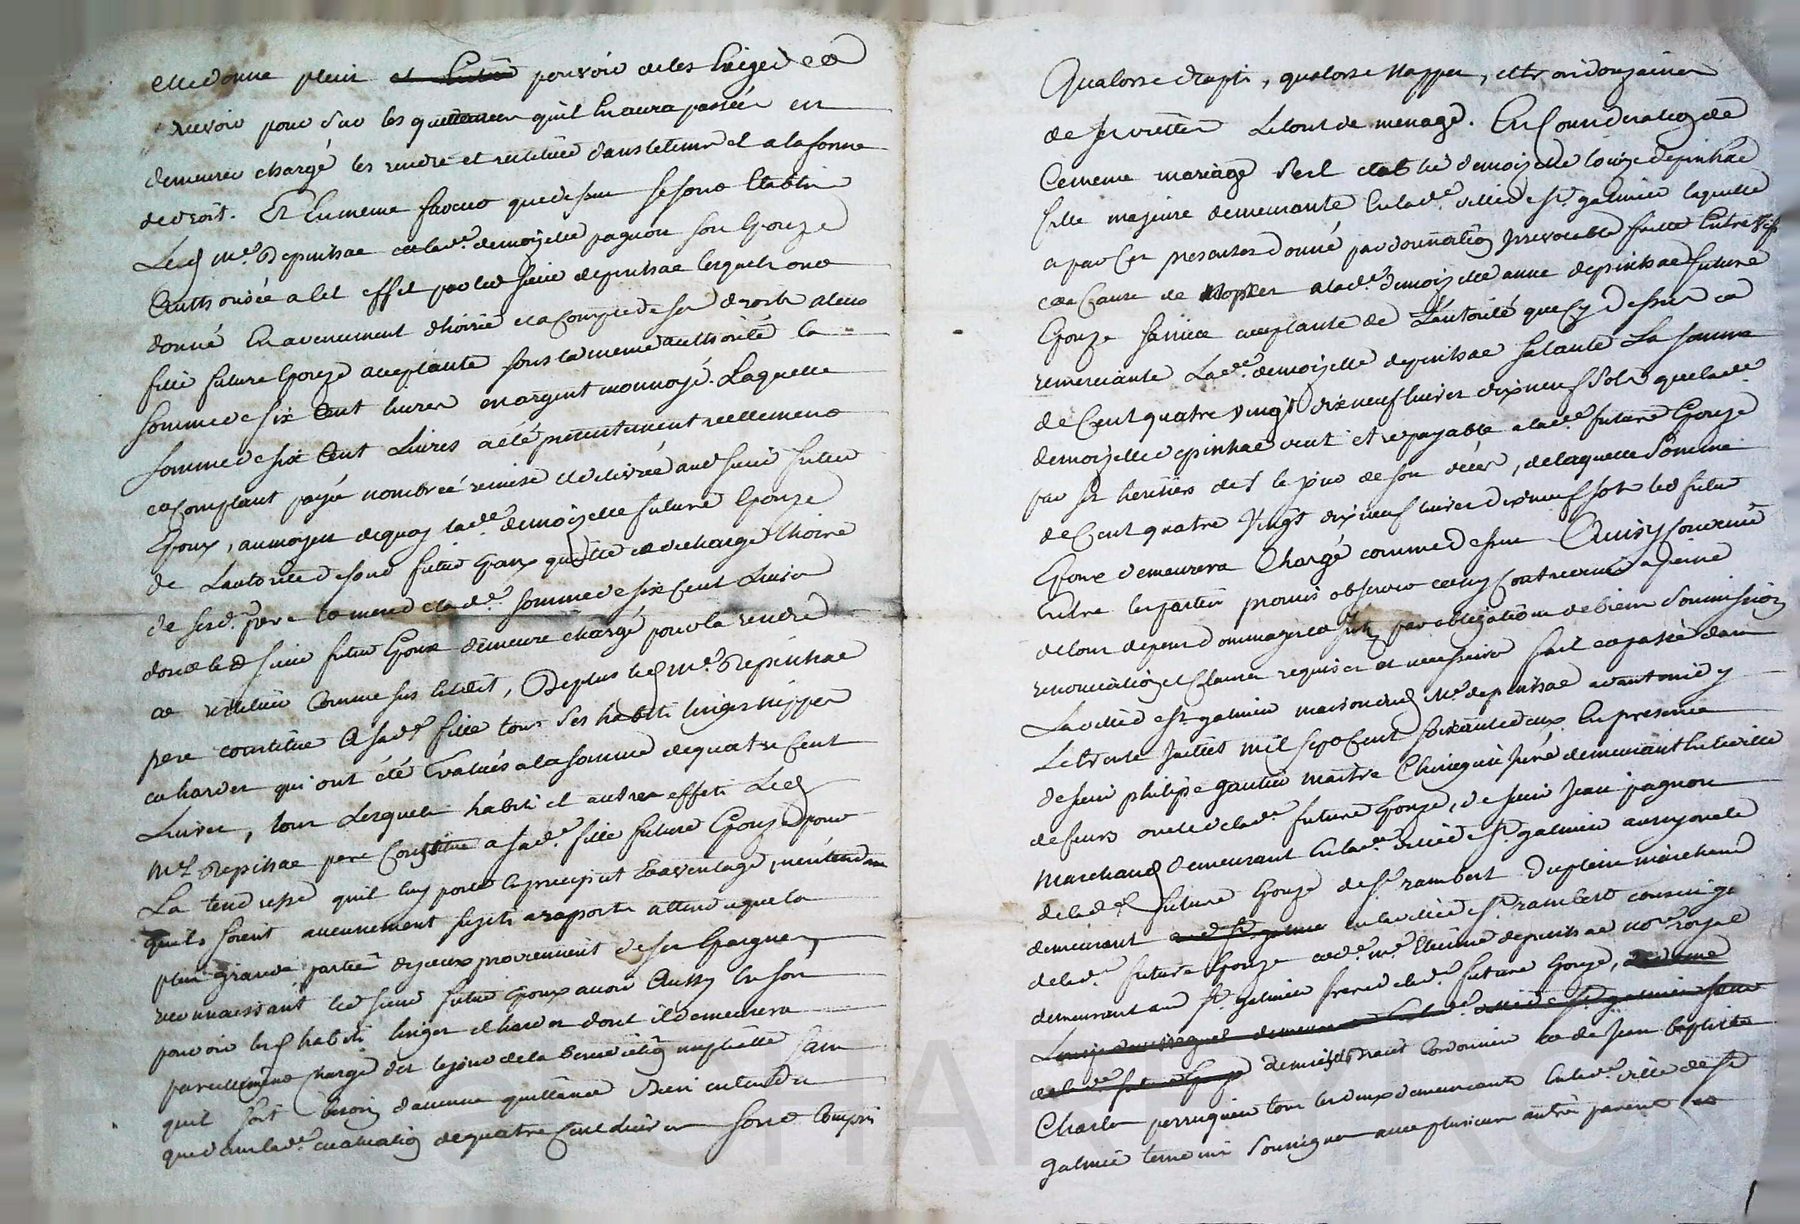 elle donne plein et entier pouvoir de les exiger et
recevoir pour sur les quittances qu'il en aura passées en
demeurer chargé les rendre et restituer dans le tems et a la forme
de droit. Et en meme faveur que dessus se sont etablis
Led Me. Depinhac et lade. demoizelle pagnon son Epouze
authorisée a cet effet par led sieur depinhac lesquels ont
donné en avancement d'hoirie et a compte de ses droits a leur
fille future Epouze acceptante sous la meme authorité la
somme de six Cent livres en argent monnoyé. Laquelle
somme de six Cent Livres a été presentement reellement
et comptant payée nombrée remise et delivrée aud sieur futur
Epoux, au moyen de quoy lade. demoizelle future Epouze
de L'autorité de sond futur Epoux quitte et decharge l'hoirie
de sesd. pere et mere de lad. somme de six Cent Livres
dont led sieur futur Epoux demeure chargé pour la rendre
et restituer comme sus est dit, Deplus led Me. Depinhac
pere constitue a sade. fille tous ses habits linges nippes
et hardes qui ont été Evalués a la somme de quatre Cent
Livres, tous Lesquels habits et autres effets Led
Me. Depinhac pere constitue a sade. fille future Epouze pour
La tendresse qu'il luy porte en preciput et avantage, n'entendant
qu'ils soient aucunement sujets a raport attendu que la
plus grande partie d'yceux proviennent de ses Epargnes,
reconnaissant led sieur futur Epoux avoir Aussy en son
pouvoir lesd habits linges et hardes dont il demeurera
pareillement chargé des le jour de la benediction nuptialle sans
qu'il soit besoin d'aucune quittance Bien entendu
que dans lade. evaluation de quatre Cent Livres sont Compris
Quatorze draps, quatorze Nappes, et trois douzaines
de serviettes Le tout de menage. En consideration de
Ce meme mariage s'est etablie demoizelle louise depinhac
fille majeure demeurante en lade. ville de St. galmier laquelle
a par Ces presentes donné par donnation Irrevocable faitte Entre vifs
et a Cause de Nopces a lade. demoizelle anne depinhac future
Epouze sa niece acceptante de L'autorité que Cy dessus et
remerciante Lade. demoizelle depinhac sa tante La somme
de Cent quatre vingt dix neuf livres dix neuf sols que lade.
demoizelle depinhac veut etre payable a lade. future Epouze
par ses heritiers des le jour de son décés, de laquelle somme
de Cent quatre vingt dix neuf livres dix neuf sols led futur
Epoux demeurera Chargé comme dessus Ainsy convenu
entre les parties promis observer et n'y contrevenir a peine
de tous depens dommages et par obligations de biens soumissions
renonciations et clauses requises et necessaires fait et passé dans
La ville de St. galmier maison dud Me. depinhac avant midy
Le trente Juillet mil sept Cent soixante deux En presence
de sieur philipe gautier maitre Chirurgien juré demeurant en la ville
de feurs oncle de lade. future Epouze, de sieur Jean pagnon
Marchand demeurant en lade. ville de St. galmier aussy oncle
de lade. future Epouze de Sr. rambert Duplain marchand
demeurant en la ville de St. rambert cousin ge
de lade. future Epouze et de Me. Etienne depinhac no.re royal
demeurant aud St. galmier frere de lade. future Epouze,
Cordonnier et de Jean baptiste
Charles perruquier tous les deux demeurants en lade. ville de St.
galmier temoins soussignes avec plusieurs autres parents et